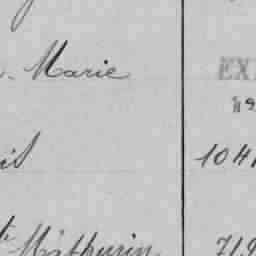 Marie EX
is 1041
Mathurin 719